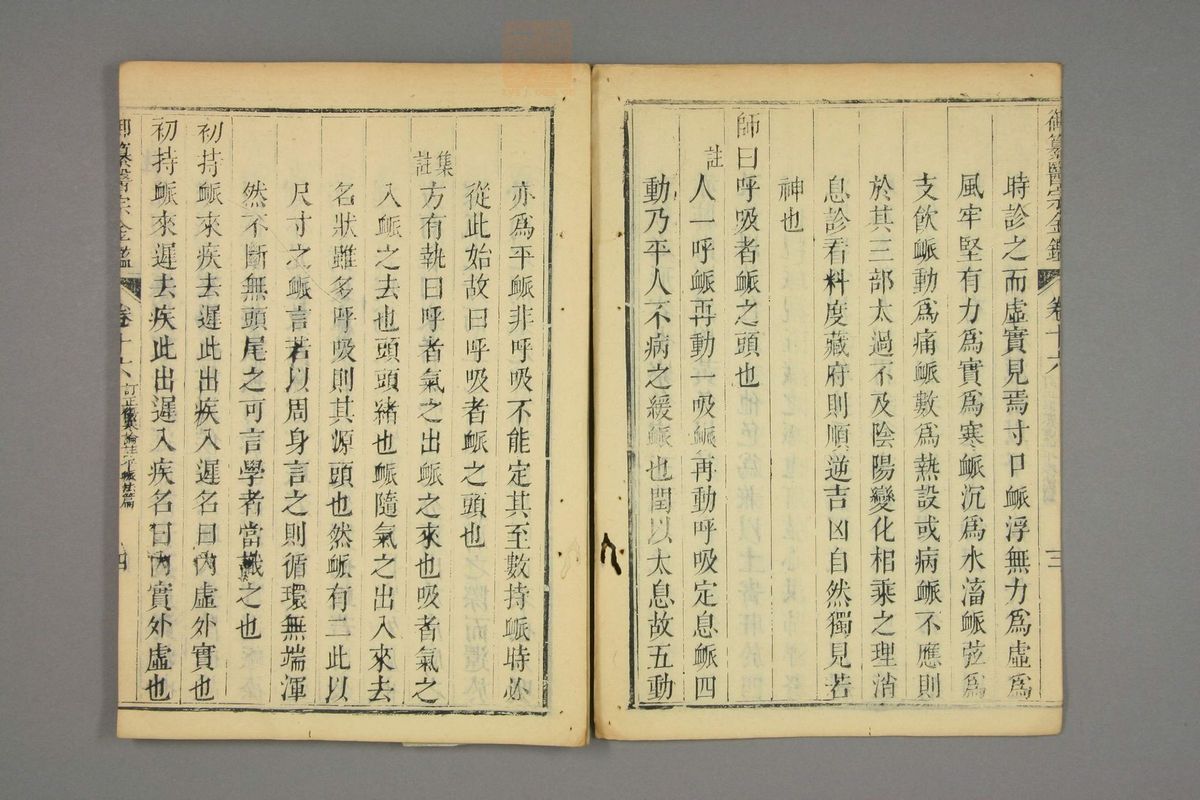 御纂醫宗金鑑 卷十六 三
時診之而虛實見焉寸口𧖴浮無力爲虛爲
風牢堅有力爲實爲寒𧖴沉爲水滀𧖴弦爲
支飲𧖴動爲痛𧖴數爲熱設或病𧖴不應則
於其三部太過不及陰陽變化相乘之理消
息診看料度藏府則順逆吉凶自然獨見若
神也
師曰呼吸者𧖴之頭也
註 人一呼𧖴再動一吸𧖴再動呼吸定息𧖴四
動乃平人不病之緩𧖴也閏以太息故五動
亦爲平𧖴非呼吸不能定其至數持𧖴時必
從此始故曰呼吸者𧖴之頭也
集註 方有執曰呼者氣之出𧖴之來也吸者氣之
入𧖴之去也頭頭緒也𧖴隨氣之出入來去
名狀雖多呼吸則其源頭也然𧖴有三此以
尺寸之𧖴言若以周身言之則循環無端渾
然不斷無頭尾之可言學者當識之也
初持𧖴來疾去遲此出疾入遲名曰內虛外實也
初持𧖴來遲去疾此出遲入疾名曰內實外虛也
御纂醫宗金鑑 卷十六 訂正傷寒論註平𧖴法篇 四